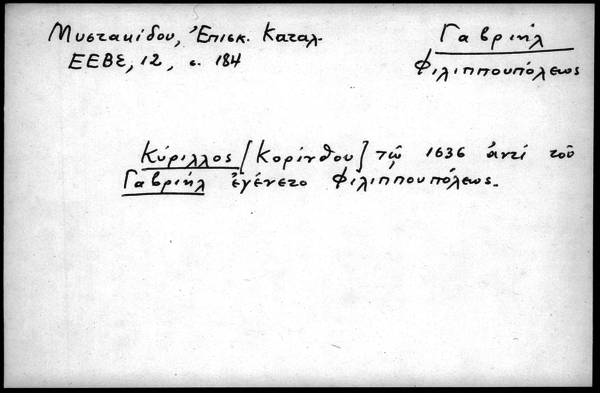 Μυστακίδου, Ἐπισκ. Καταλ.
ΕΕΒΣ, 12, σ. 184
Γαβριήλ
Φιλιππουπόλεως
Κύριλλος [Κορίνθου] τῷ 1636 ἀντί τοῦ
Γαβριήλ ἐγένετο Φιλιππουπόλεως.